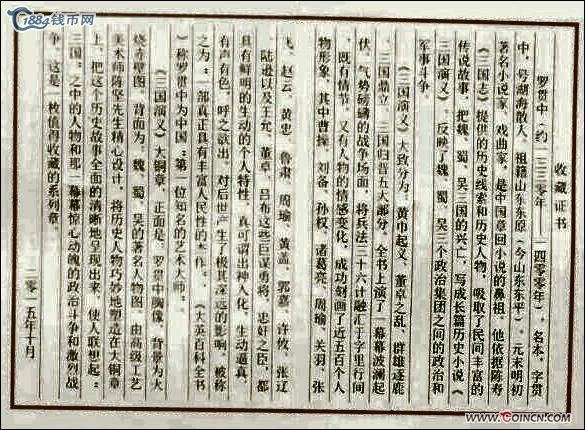 1884钱币网
COIN.COM
收藏证书
罗贯中（约一三三零年——一四零零年），名本，字贯
中，号湖海散人，祖籍山东东原（今山东东平）。元末明初
著名小说家，戏曲家，是中国章回小说的鼻祖。他依据陈寿
《三国志》提供的历史线索和历史人物，吸取了民间丰富的
传说故事，把魏、蜀、吴三国的兴亡，写成长篇历史小说《
三国演义》，反映了魏、蜀、吴三个政治集团之间的政治和
军事斗争。
《三国演义》大致分为：黄巾起义、董卓之乱、群雄逐鹿
三国鼎立、三国归晋五大部分，全书上演了一幕幕波澜起
伏、气势磅礴的战争场面，将兵法三十六计融汇于字里行间
，既有情节，又有人物的情感变化，成功刻画了近五百个人
物形象，其中曹操、刘备、孙权、诸葛亮、周瑜、关羽、张
飞、赵云、黄忠、鲁肃、周瑜、黄盖、郭嘉、许攸、张辽
、陆逊以及王允、董卓、吕布这些巨谋勇将，忠奸之臣，都
具有鲜明的生动的个人特性，真可谓出神入化，生动逼真，
有声有色，呼之欲出，对后世产生了极其深远的影响，被称
之为：一部真正具有丰富人民性的杰作。《大英百科全书
》称罗贯中为中国：第一位知名的艺术大师。
《三国演义》大铜章，正面是：罗贯中胸像，背景为火
烧赤壁图，背面为：魏、蜀、吴的著名人物图，由高级工艺
美术师陈坚先生精心设计，将历史人物巧妙地塑造在大铜章
上，把这个历史故事全面的清晰地呈现出来，使人联想起：
三国：之中的人物和那一幕幕惊心动魄的政治斗争和激烈战
争。这是一枚值得收藏的系列章。
二零一五年十月
www.COINCN.COM